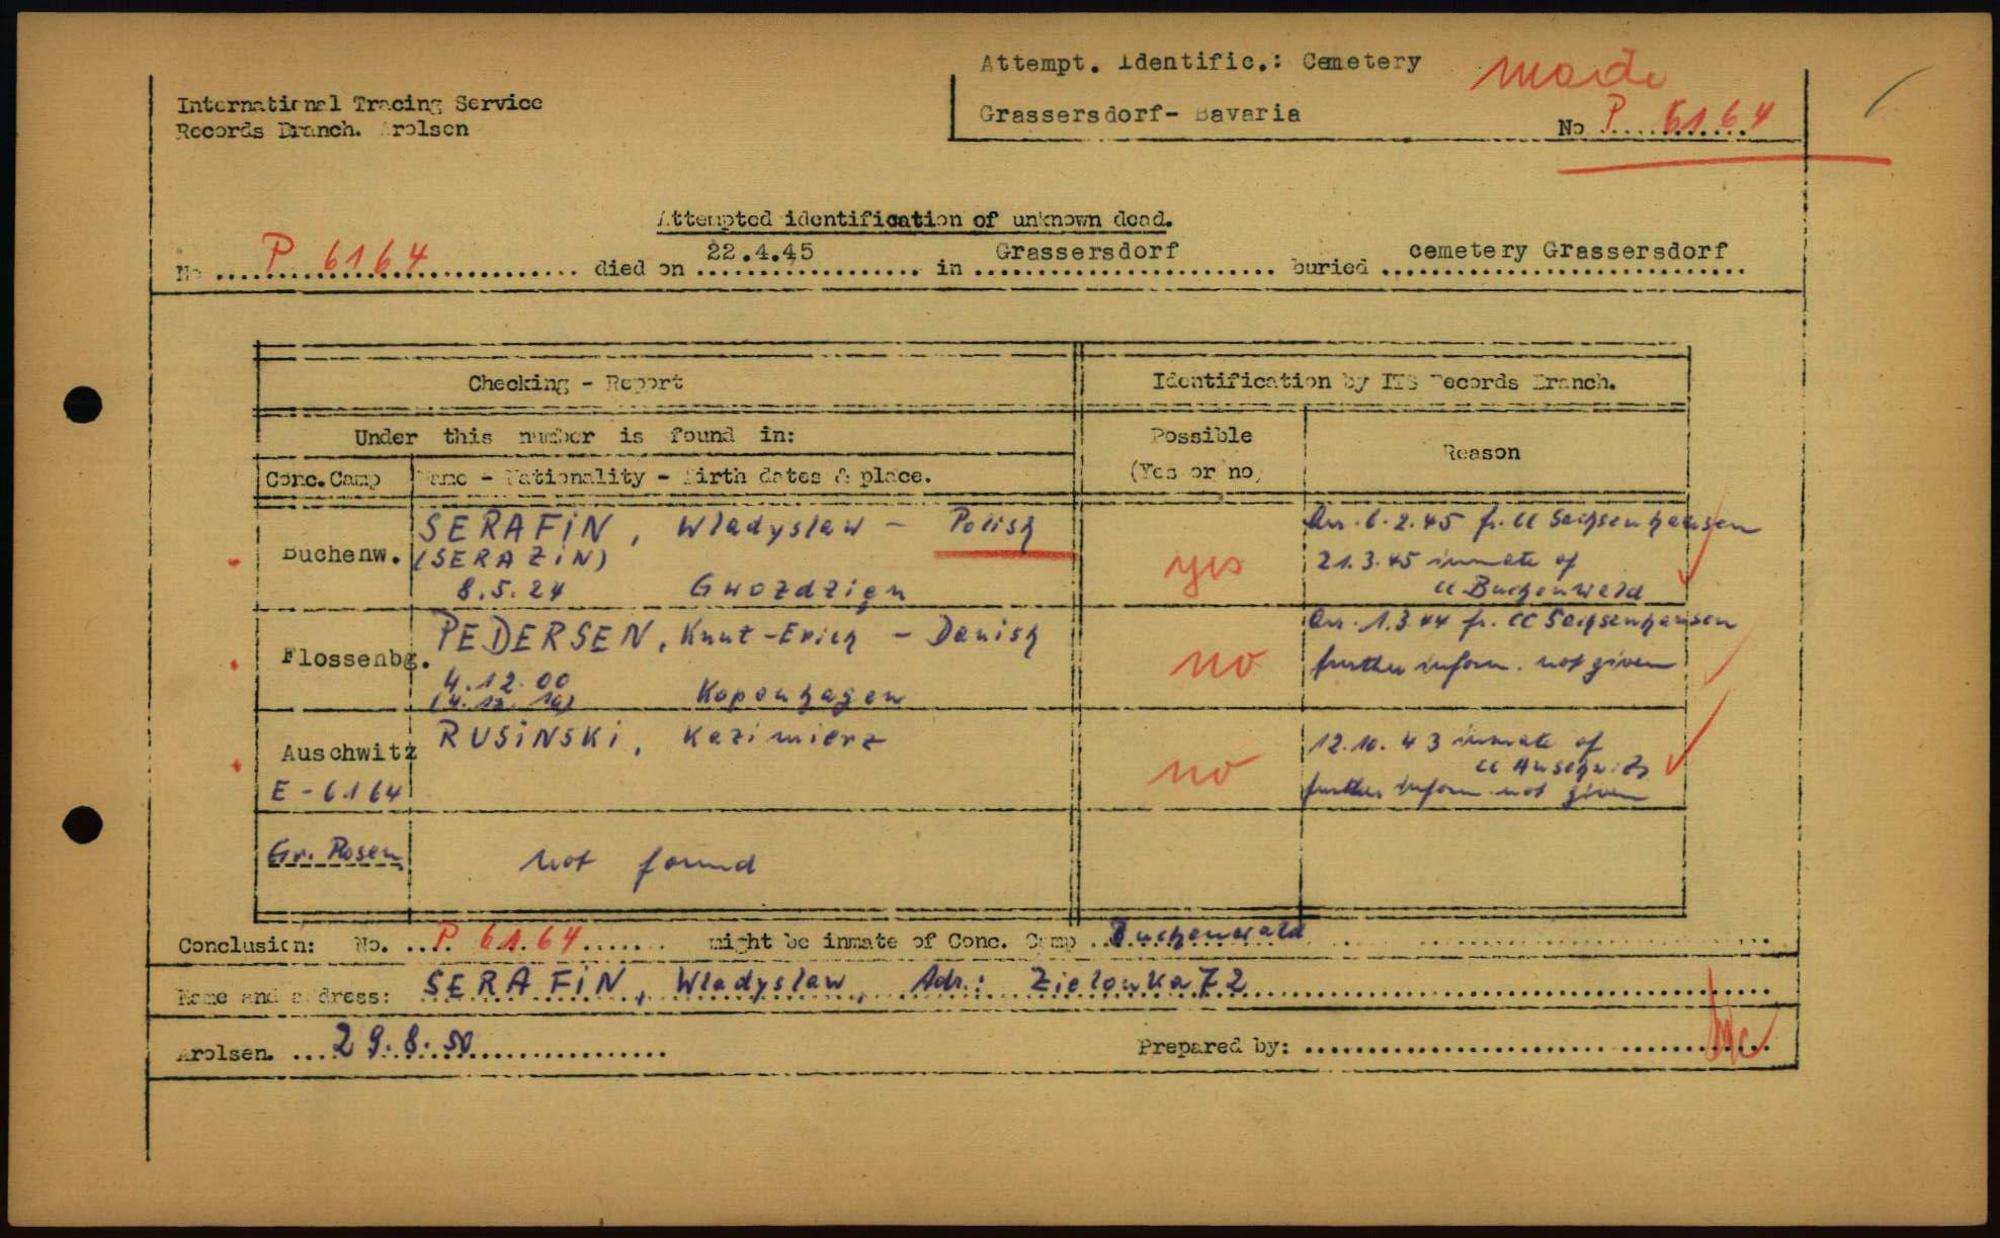 Attempt. Identific.: Cemetery
made
International Tracing Service
Records Branch. Arolsen
Grassersdorf- Bavaria
No P 6164
Attempted identification of unknown dead.
No P 6164 died on 22.4.45 in Grassersdorf buried cemetery Grassersdorf
Checking - Report
Identification by ITS Records Branch.
Under this number is found in:
Possible
(Yes or no)
Reason
Conc. Camp
Name - Nationality - Birth dates & place.
Buchenw.
SERAFIN, Wladyslaw - Polish
(SERAZIN)
8.5.24 Gwozdzien
yes
Arr. 6.2.45 fr. CC Sachsenhausen
21.3.45 inmate of
CC Buchenwald
Flossenbg.
PEDERSEN, Knut-Erich - Danish
4.12.00
Kopenhagen
no
Arr. 1.3 44 fr. CC Sachsenhausen
further inform. not given
Auschwitz
E-6164
RUSINSKI, Kazimierz
no
12.10.43 inmate of
CC Auschwitz
further inform not given
Gr. Rosen
not found
Conclusion: No. P 6164 might be inmate of Conc. Camp Buchenwald
Name and address: SERAFIN, Wladyslaw, Adr.: Zielonka 72
Arolsen. 29.8.50
Prepared by: